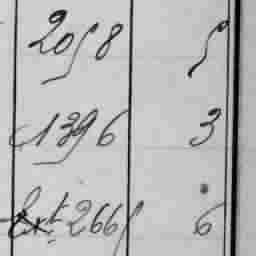 2058 5
1396 3
Ext 2665 6